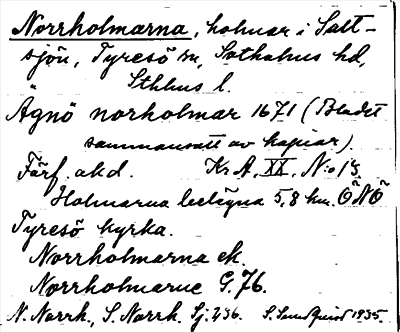 Norrholmarna, holmar i Salt-
sjön, Tyresö sn, Sotholms hd,
Sthlms l.
Ägnö norholmar 1671 (Bladet
sammansatt av kopior).
Förf. okd. Kr A, XX, N:o 15.
Holmarna belägna 5,8 km. ÖNÖ
Tyresö kyrka.
Norrholmarna ek.
Norrholmarne G. 76.
N. Norrh., S. Norrh. Sj. 236. S. Sundquist 1935.